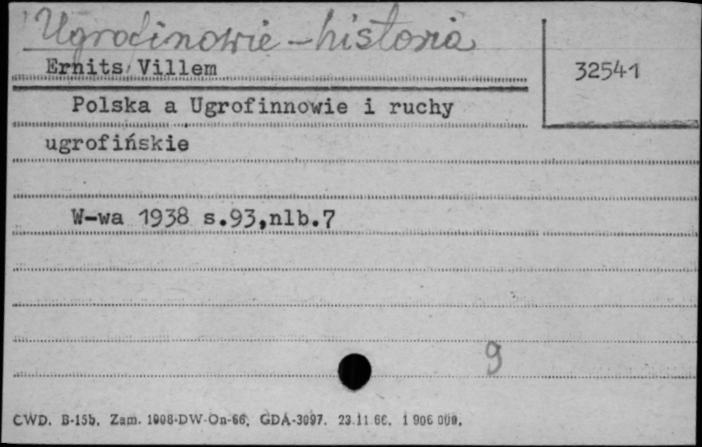 Ugrofinowie - historia
Ernits Villem
32541
Polska a Ugrofinnowie i ruchy
ugrofińskie
W-wa 1938 s.93,nlb.7
9
CWD. B-15b. Zam. 1008-DW-On-66. GDA-3097. 23.11 66. 1 906 000.